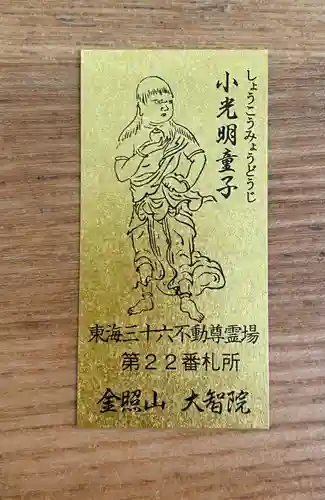 しょうこうみょうどうじ
小光明童子
東海三十六不動尊霊場
第２２番札所
金照山　大智院